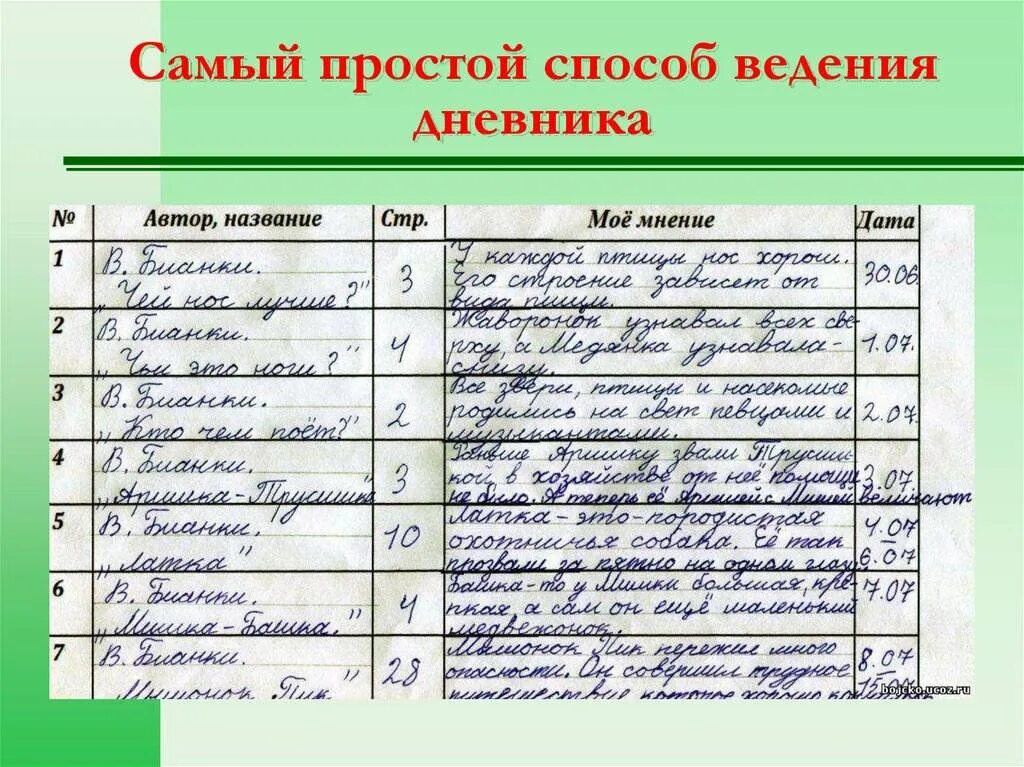 Самый простой способ ведения
дневника
№ Автор, название Стр. Моё мнение Дата
1 В. Бианки. „Чей нос лучше?" 3 У каждой птицы нос хорош. 30.06
Его строение зависит от
вида пищи.
2 В. Бианки. „Чьи это ноги?" 4 Жаворонок узнавал всех све-
рху, а Медянка узнавала- 1.07.
снизу.
3 В. Бианки. „Кто чем поёт?" 2 Все звери, птицы и насекомые
родились на свет певцами и 2.07
музыкантами.
4 В. Бианки. „Аришка-Трусишка 3 Раньше Аришку звали Трусиш-
кой в хозяйстве от неё помощи 3.07.
не было. А теперь её Аришей с Мишей величают
5 В. Бианки. „Латка" 10 Латка-это-породистая 4.07
охотничья собака. Её так
прозвали за пятно на одном глазу 6.07
6 В. Бианки. „Мишка-Башка." 4 Башка-то у Мишки большая, кре- 7.07
пкая, а сам он ещё маленький
медвежонок.
7 В. Бианки. Мышонок Пик 28 Мышонок Пик пережил много 8.07
опасности. Он совершил трудное
путешествие которое хорошо 15.07
bojcko.ucoz.ru